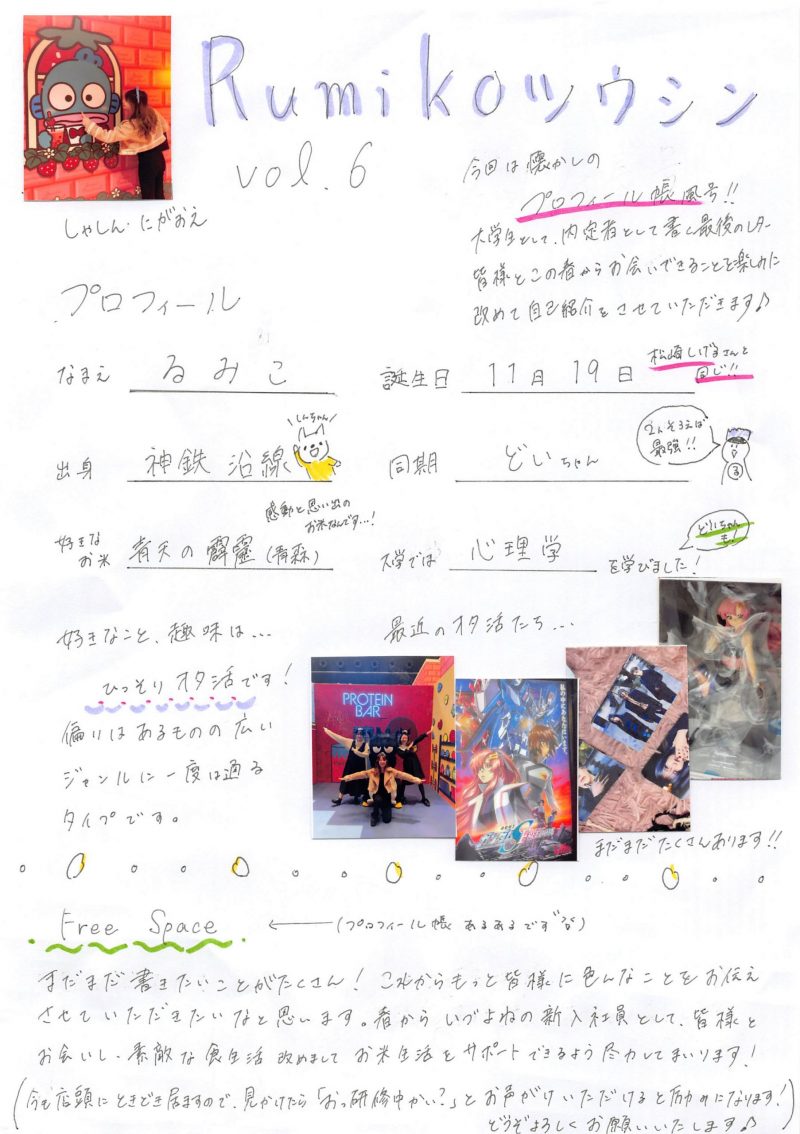 Rumikoツウシン
vol.6
しゃしん・にがおえ
今回は懐かしの
プロフィール帳風号!!
大学生として、内定者として書く最後のレター
皆様とこの春からお会いできることを楽しみに
改めて自己紹介をさせていただきます♪
プロフィール
なまえ るみこ
誕生日 11月19日
松崎しげるさんと
同じ!!
出身 神鉄沿線
\しんちゃん/
同期 どいちゃん
2人そろえば
最強!!
る
好きな
お米 青天の霹靂(青森)
感動と思い出の
お米なんです…!
大学では 心理学 を学びました!
どいちゃん
も!
好きなこと、趣味は…
ひっそりオタ活です!
偏りはあるものの広い
ジャンルに一度は通る
タイプです。
最近のオタ活たち…
PROTEIN
BAR
私の中にあなたはいます。
まだまだたくさんあります!!
Free Space
←(プロフィール帳あるあるです)
まだまだ書きたいことがたくさん! これからもっと皆様に色んなことをお伝え
させていただきたいなと思います。春からいづよねの新入社員として、皆様と
お会いし、素敵な食生活改めましてお米生活をサポートできるよう尽力してまいります!
(今も店頭にときどき居ますので、見かけたら「おっ研修中かい?」とお声がけいただけると励みになります!
どうぞよろしくお願いいたします♪)